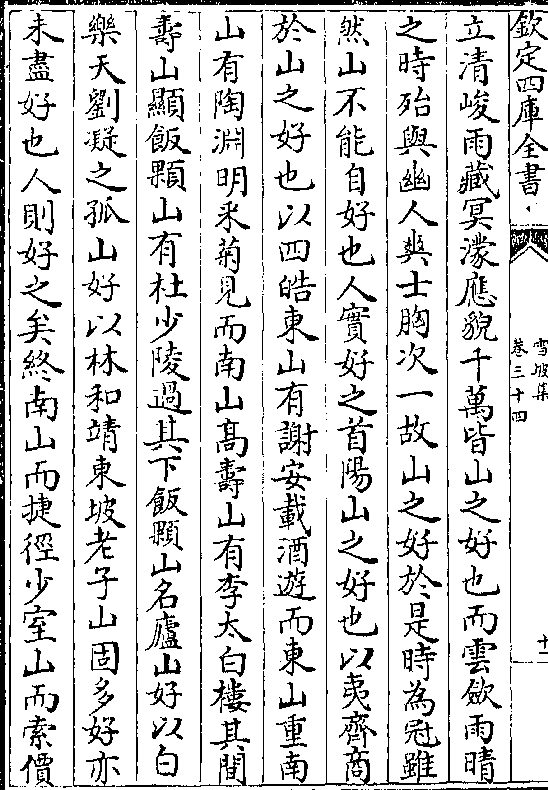 欽定四庫全書
雪坡集
卷三十四
十二
立清峻雨藏冥濛應貌千萬皆山之好也而雲斂雨晴
之時殆與幽人爽士胸次一故山之好於是時為冠雖
然山不能自好也人實好之首陽山之好也以夷齊商
於山之好也以四皓東山有謝安載酒遊而東山重南
山有陶淵明采菊見而南山髙壽山有李太白棲其間
壽山顯飯顆山有杜少陵過其下飯顆山名廬山好以白
樂天劉凝之孤山好以林和靖東坡老子山固多好亦
未盡好也人則好之矣終南山而捷徑少室山而索價